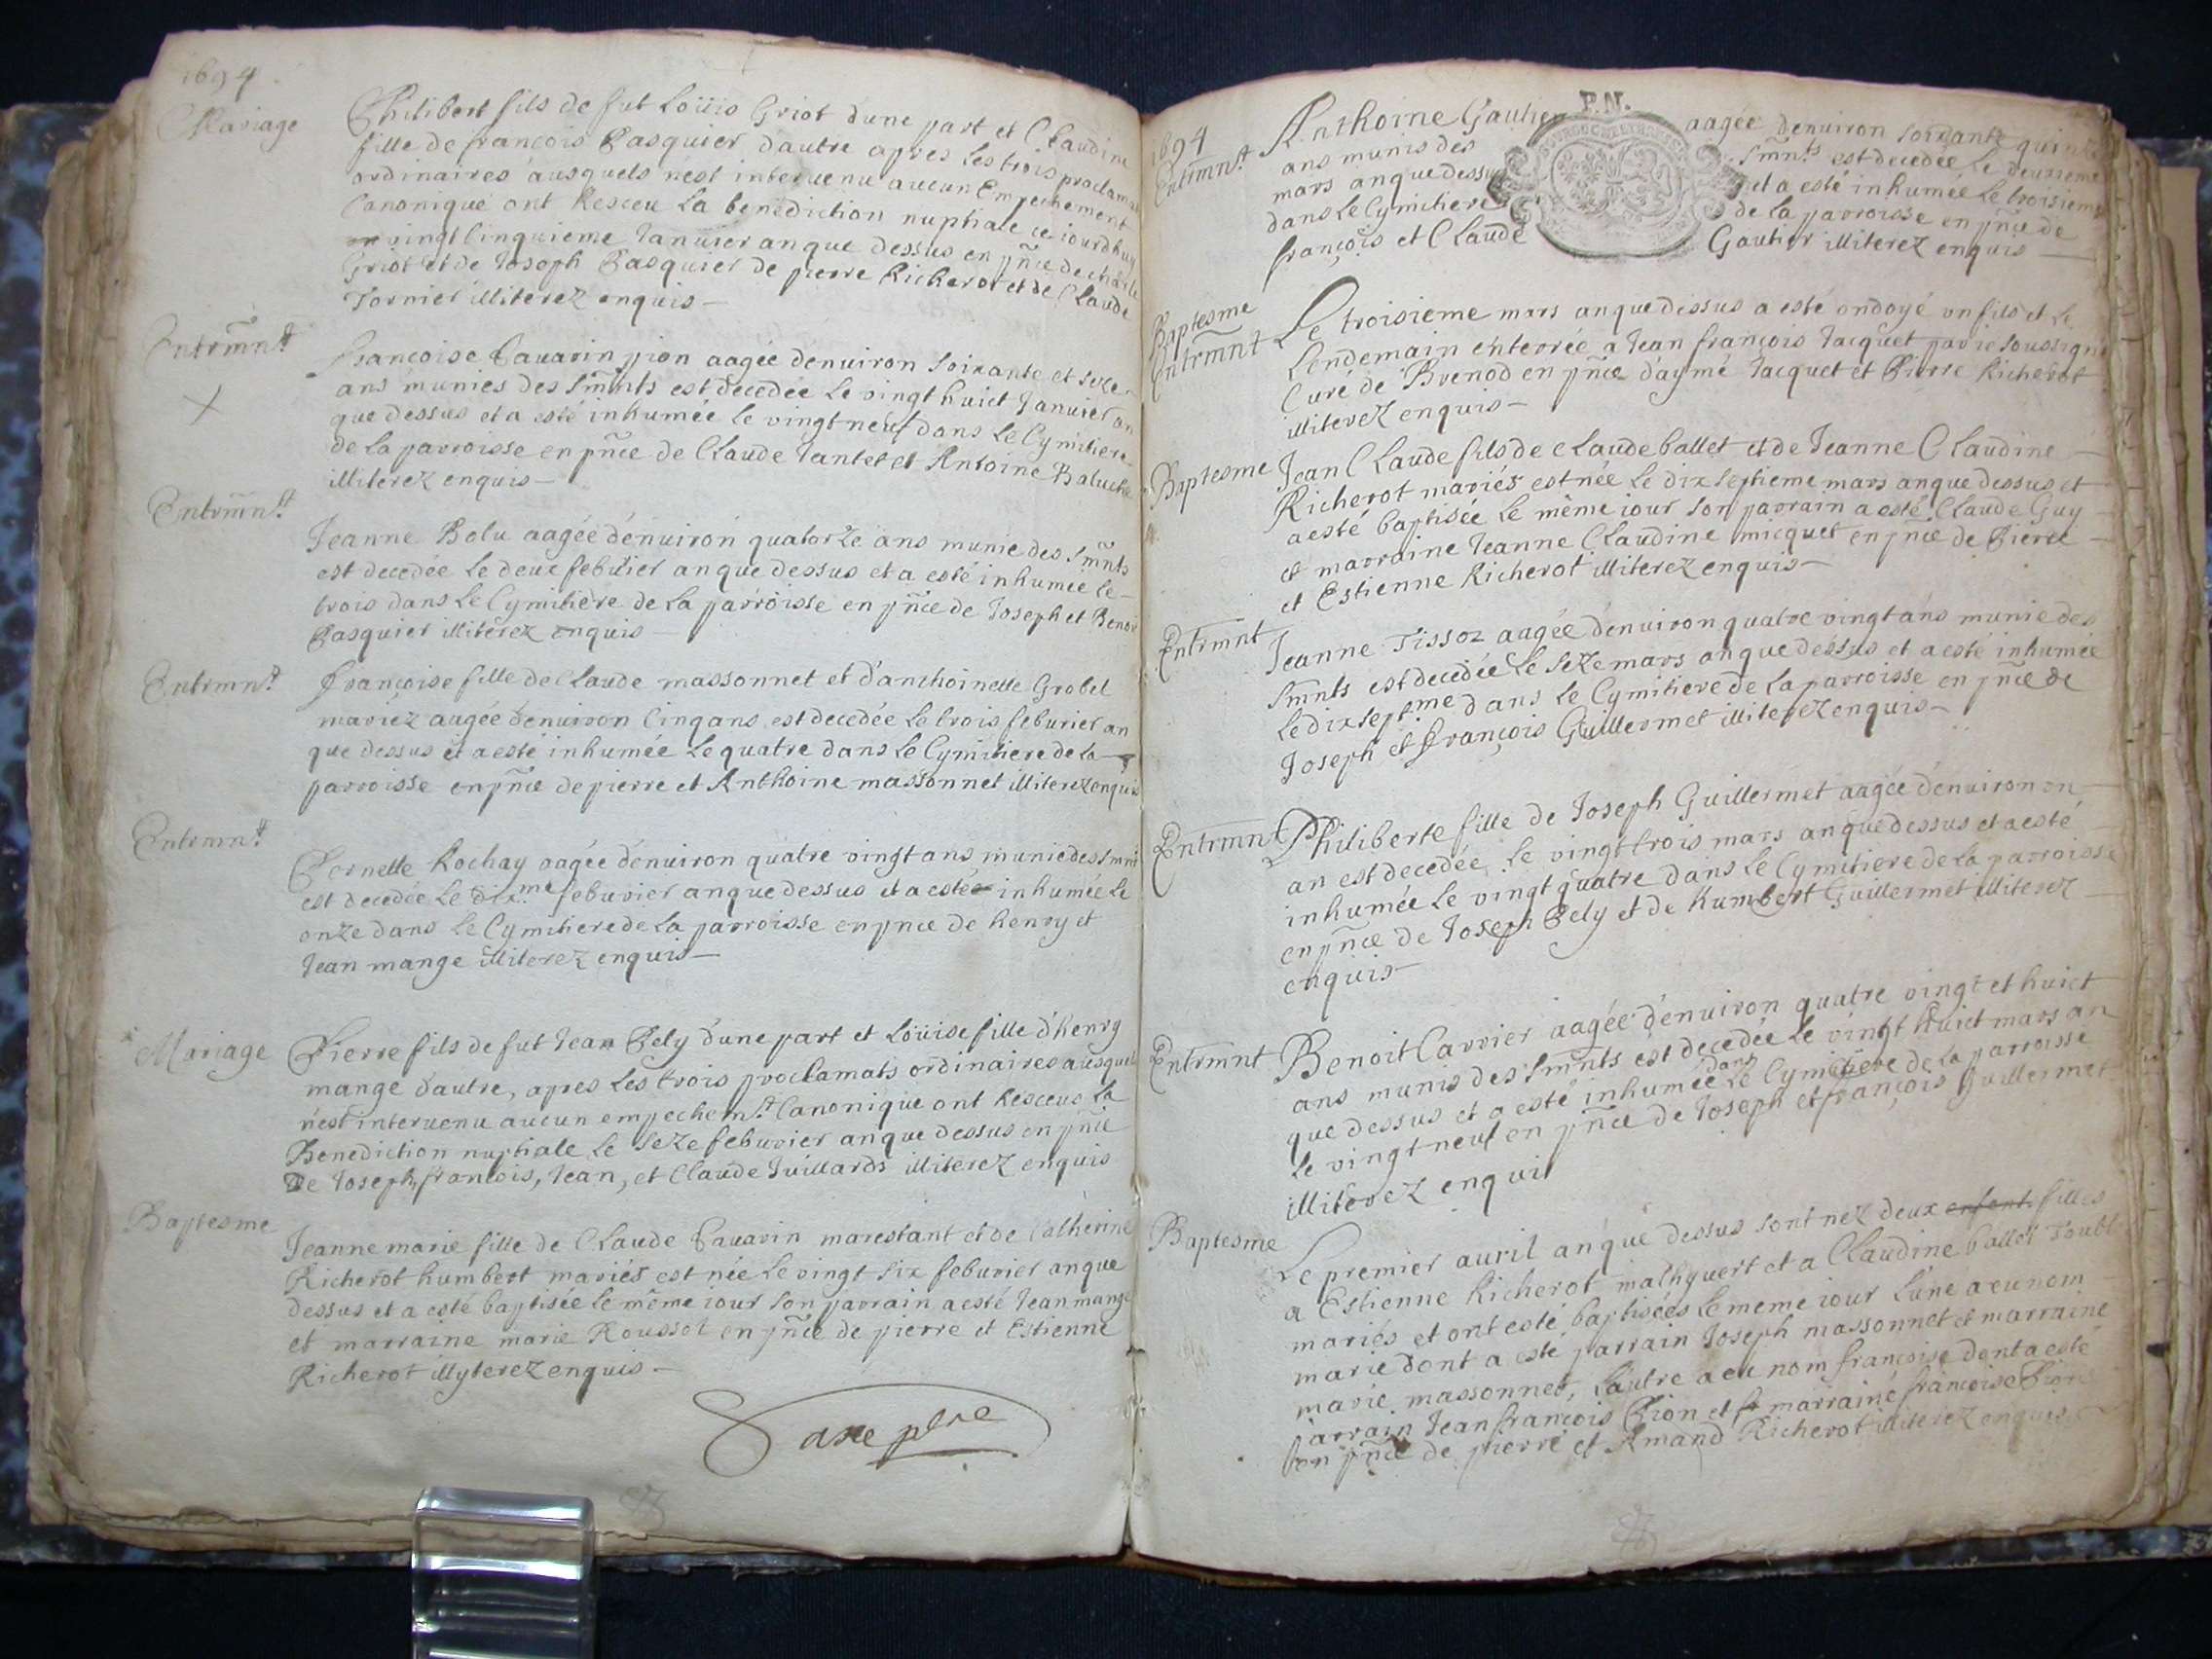 1694
Mariage
Philibert fils de fut Loüis Griot dune part et Claudine
fille de françois Pasquier d'autre apres les trois proclama
ordinaires ausquels n'est interuenu aucun Empechement
Canonique ont Resceu La benediction nuptiale ce iourdhuy
vingt Cinquieme Januier an que dessus en pñce de charle
Griot et de Joseph Pasquier de pierre Richerot et de Claude
Tornier illiterez enquis
Entrm̃nt
Françoise Tauarin pion aagée d'enuiron soixante et seze
ans munies des Sm̃nts est decedée Le vingt huict Januier an
que dessus et a esté inhumée Le vingt neuf dans Le Cymitiere
de La parroisse en pñce de Claude Jantet et Antoine Baluche
illiterez enquis
Entrm̃nt
Jeanne Bolu aagée d'enuiron quatorze ans munie des Sm̃nts
est decedée Le deux feburier an que dessus et a esté inhumée Le
trois dans Le Cymitiere de La parroisse en pñce de Joseph et Benoi
Pasquier illiterez enquis
Entrmnt
Françoise fille de Claude massonnet et d'anthoinette Grobel
mariez aagée d'enuiron Cinq ans est decedée Le trois feburier an
que dessus et a esté inhumée Le quatre dans Le Cymitiere de La
parroisse en pñce de pierre et Anthoine massonnet illiterez enquis
Entrmnt
Pernette Rochay aagée d'enuiron quatre vingt ans munie des Smnts
est decedée Le dix.me feburier an que dessus et a estée inhumée Le
onze dans Le Cymitiere de La parroisse en pnce de henry et
Jean mange illiterez enquis
Mariage
Pierre fils de fut Jean Pely d'une part et Loüise fille d'henry
mange d'autre, apres Les trois proclamats ordinaires ausquels
n'est interuenu aucun empechemt Canonique ont Resceus La
Benediction nuptiale Le seze feburier an que dessus en pñce
De Joseph, francois, Jean, et Claude Juillards illiterez enquis
Baptesme
Jeanne marie fille de Claude Tauarin marestant et de Catherine
Richerot humbert mariés est née Le vingt six feburier an que
dessus et a esté baptisée Le même iour son parrain a esté Jean mange
et marraine marie Roussel en pñce de pierre et Estienne
Richerot illyterez enquis
1694
P.N.
Entrmnt
Anthoine Gautier aagée d'enuiron soixante quinze
ans munis des Smnts est decedée Le deuxieme
mars an que dessus et a esté inhumée Le troisieme
dans Le Cymitiere de La parroisse en pñce de
françois et Claude Gautier illiterez enquis
Baptesme
Entrmnt
Le troisieme mars an que dessus a esté ondoyé un fils et Le
Lendemain enterrée a Jean françois Jacquet par ie soussigné
Curé de Brenod en pñce d'aymé Jacquet et Pierre Richerot
illiterez enquis
Baptesme
Jean Claude fils de Claude ballet et de Jeanne Claudine
Richerot mariés est née Le dix septieme mars an que dessus et
a esté baptisée Le même iour son parrain a esté Claude Guy
et marraine Jeanne Claudine micquet en pñce de Pierre
et Estienne Richerot illiterez enquis
Entrmnt
Jeanne Tissoz aagée d'enuiron quatre vingt ans munie des
Smnts est decedée Le seze mars an que dessus et a esté inhumée
Le dix septme dans Le Cymitiere de La parroisse en pñce de
Joseph et françois Guillermet illiterez enquis
Entrmnt
Philiberte fille de Joseph Guillermet aagée d'enuiron un
an est decedée Le vingt trois mars an que dessus et a esté
inhumée Le vingt quatre dans Le Cymitiere de La parroisse
en pñce de Joseph Pely et de humbert Guillermet illiterez
enquis
Entrmnt
Benoit Carrier aagée d'enuiron quatre vingt et huict
ans munis des Smnts est decedée Le vingt huict mars an
que dessus et a esté inhumée dans Le Cymitiere de La parroisse
Le vingt neuf en pñce de Joseph et françois Guillermet
illiterez enquis
Baptesme
Le premier auril an que dessus sont nez deux enfants filles
a Estienne Richerot mathyuert et a Claudine ballet
mariés et ont esté baptisées Le meme iour L'une a eu nom
marie dont a esté parrain Joseph massonnet et marraine
marie massonnet, L'autre a eu nom françoise dont a esté
parrain Jean françois Pion et marraine françoise Pion
en pñce de pierre et Amand Richerot illiterez enquis